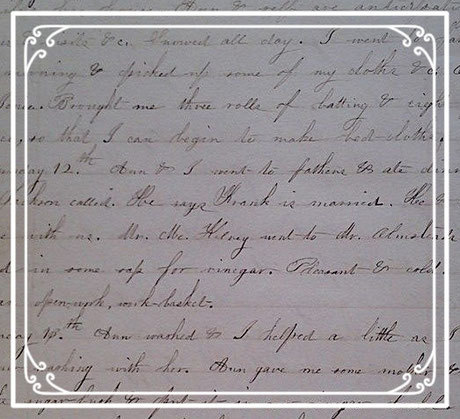 Ann & . . . are anticipating
visits & c. Snowed all day. I went
morning & picked up some of my cloths & c
Brought me three rolls of batting & eight
so that I can begin to make bed-cloths.
12.th Ann & I went to fathers & ate
called. He says Frank is married. He &
with us. Mr. Mc. went to Mr. Almsteads
in some sap for vinegar. Pleasant & cold.
open-work, work-basket.
Ann washed & I helped a little as I
washing with her. Ann gave me some
sugar & put it